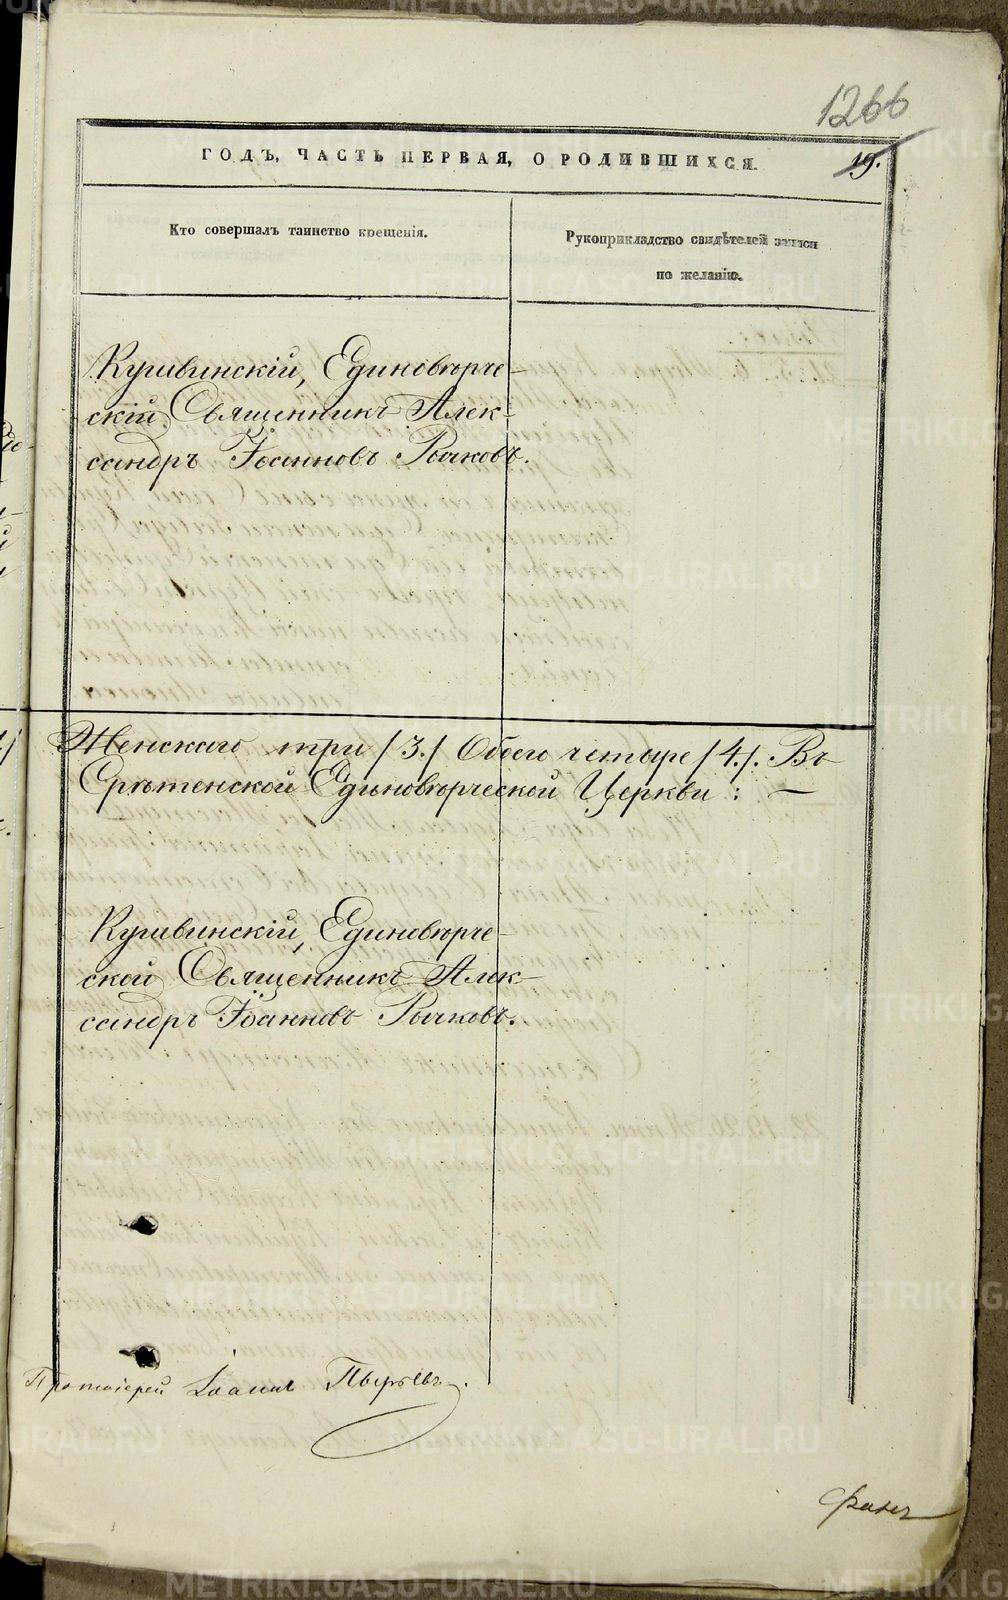 1266
ГОДЪ, ЧАСТЬ ПЕРВАЯ, О РОДИВШИХСЯ.
19.
Кто совершалъ таинство крещенія.
Рукоприкладство свидѣтелей записи
по желанію.
Кушвинскій, Единовѣрче-
скій Священникъ Алек-
сандръ Іоанновъ Рычковъ.
Женскаго три /3./ Обоего четыре /4./. Въ
Срѣтенской Единовѣрческой Церкви: —
Кушвинскій, Единовѣрче-
ской Священникъ Алек-
сандръ Іоанновъ Рычковъ.
Протоіерей Іоаннъ
METRIKI.GASO-URAL.RU